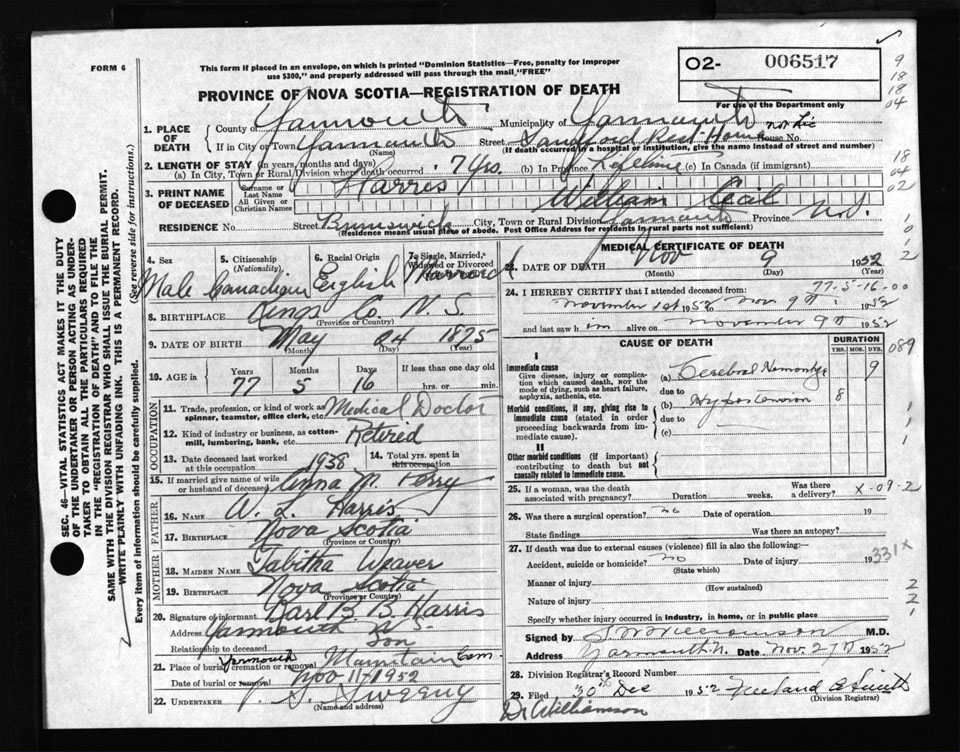 FORM 6
This form if placed in an envelope, on which is printed "Dominion Statistics—Free, penalty for improper
use $300," and properly addressed will pass through the mail "FREE"
O2- 006517
For use of the Department only
PROVINCE OF NOVA SCOTIA—REGISTRATION OF DEATH
9
18
18
04
18
04
02
1
0
1
2
1. PLACE OF DEATH
County of Yarmouth Municipality of Yarmouth
If in City or Town Yarmouth Street Sandford Rest Home House No.
(Name) (If death occurred in a hospital or institution, give the name instead of street and number)
2. LENGTH OF STAY (in years, months and days)
(a) In City, Town or Rural Division where death occurred 7 yrs. (b) In Province Lifetime (c) In Canada (if immigrant)
3. PRINT NAME OF DECEASED
Surname or Last Name Harris
All Given or Christian Names William Cecil
RESIDENCE No. Street Brunswick City, Town or Rural Division Yarmouth Province N.S.
(Residence means usual place of abode. Post Office Address for residents in rural parts not sufficient)
4. Sex Male
5. Citizenship (Nationality) Canadian
6. Racial Origin English
7. Single, Married, Widowed or Divorced Married
8. BIRTHPLACE Kings Co. N. S.
(Province or Country)
9. DATE OF BIRTH May 24 1875
(Month) (Day) (Year)
10. AGE in Years Months Days If less than one day old
77 5 16 hrs. or min.
OCCUPATION
11. Trade, profession, or kind of work as spinner, teamster, office clerk, etc. Medical Doctor
12. Kind of industry or business, as cotton-mill, lumbering, bank, etc. Retired
13. Date deceased last worked at this occupation 1938
14. Total yrs. spent in this occupation
15. If married give name of wife or husband of deceased Anna M. Perry
FATHER
16. NAME W. L. Harris
17. BIRTHPLACE Nova Scotia
(Province or Country)
MOTHER
18. MAIDEN NAME Tabitha Weaver
19. BIRTHPLACE Nova Scotia
(Province or Country)
20. Signature of informant Karl B. B. Harris
Address Yarmouth N S
Relationship to deceased Son
21. Place of burial, cremation or removal Yarmouth Mountain Cem.
Date of burial or removal Nov 11th 1952
22. UNDERTAKER V. S. Sweeny
(Name and address)
MEDICAL CERTIFICATE OF DEATH
23. DATE OF DEATH Nov 9 1952
(Month) (Day) (Year)
77-5-16-00
24. I HEREBY CERTIFY that I attended deceased from
November 1st 1952 to Nov. 9th 1952
and last saw him alive on November 9th 1952
CAUSE OF DEATH
DURATION
YRS. MOS. DYS.
089
I
Immediate cause
Give disease, injury or complication which caused death, not the mode of dying, such as heart failure, asphyxia, asthenia, etc.
(a) Cerebral Hemorrhage 9
due to
Morbid conditions, if any, giving rise to immediate cause (stated in order proceeding backwards from immediate cause).
(b) Hypertension 8
due to
(c)
II
Other morbid conditions (if important) contributing to death but not causally related to immediate cause.
1
1
1
25. If a woman, was the death associated with pregnancy? Duration weeks. Was there a delivery?
X-09-2
26. Was there a surgical operation? no Date of operation 19
State findings Was there an autopsy?
27. If death was due to external causes (violence) fill in also the following:—
Accident, suicide or homicide? no Date of injury 19
(State which)
331X
Manner of injury
(How sustained)
Nature of injury
2
2
1
Specify whether injury occurred in industry, in home, or in public place
Signed by Williamson M.D.
Address Yarmouth N. Date Nov. 27th 1952
28. Division Registrar's Record Number
29. Filed 30th Dec 1952 Freeland B Smith
(Division Registrar)
Dr Williamson
SEC. 46—VITAL STATISTICS ACT MAKES IT THE DUTY
OF THE UNDERTAKER OR PERSON ACTING AS UNDER-
TAKER TO OBTAIN ALL THE PARTICULARS REQUIRED
IN THE "REGISTRATION OF DEATH" AND TO FILE THE
SAME WITH THE DIVISION REGISTRAR WHO SHALL ISSUE THE BURIAL PERMIT.
WRITE PLAINLY WITH UNFADING INK. THIS IS A PERMANENT RECORD.
Every item of information should be carefully supplied. (See reverse side for instructions.)